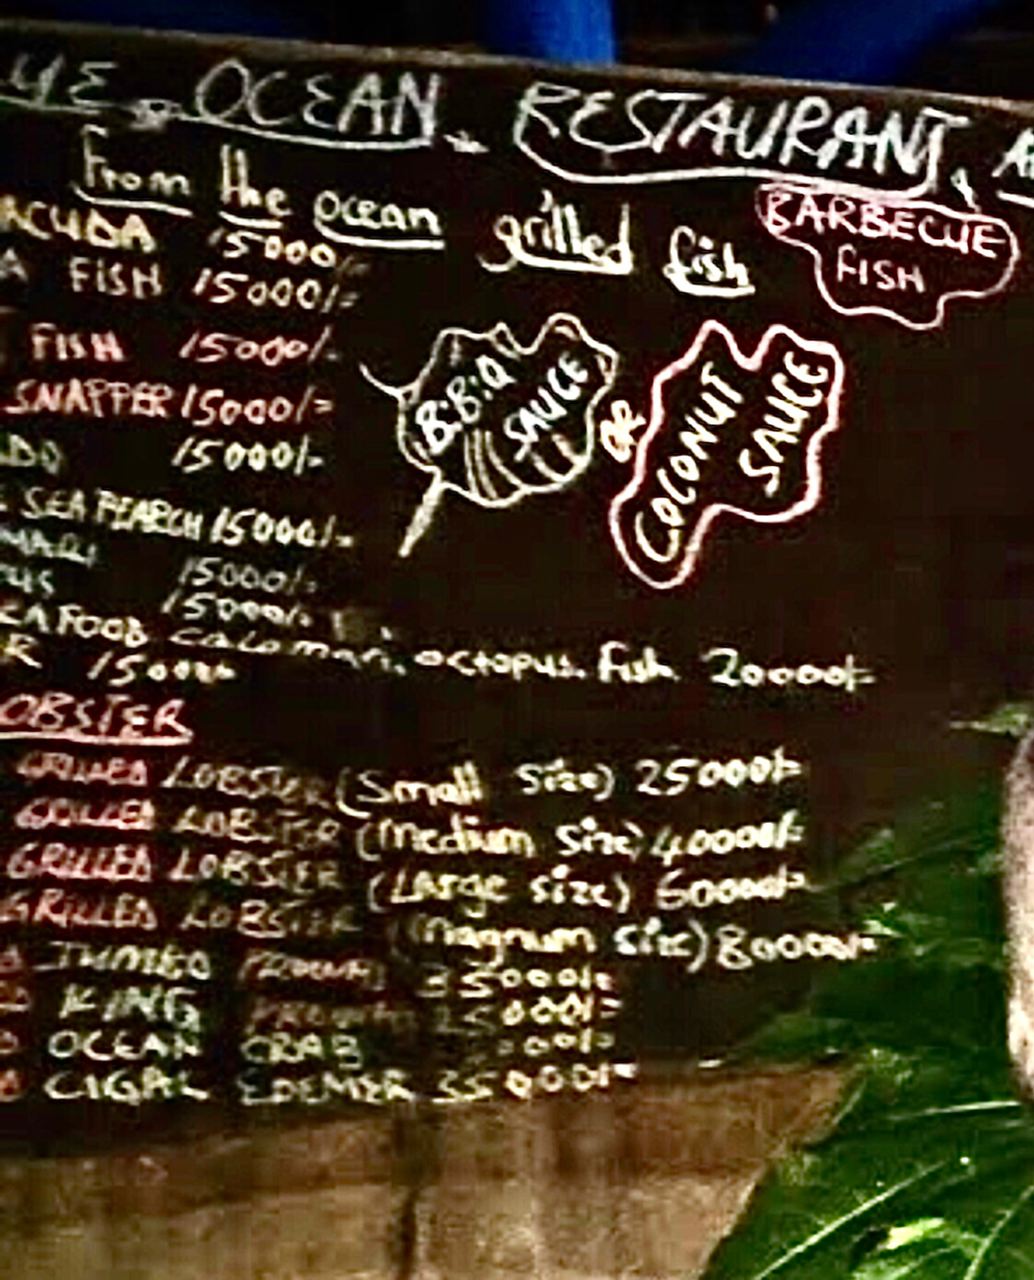 UE OCEAN RESTAURANT &
From the ocean grilled fish
BARBECUE
FISH
ACUDA 15000/=
A FISH 15000/=
FISH 15000/=
SNAPPER 15000/=
DO 15000/=
SEA PEARCH 15000/=
MARI 15000/=
PUS 15000/=
EAFOOD calamari, octopus. fish 20000/=
R 15000/=
B.B.Q
SAUCE
OR
COCONUT
SAUCE
OBSTER
GRILLED LOBSTER (Small size) 25000/=
GRILLED LOBSTER (Medium size) 40000/=
GRILLED LOBSTER (Large size) 60000/=
GRILLED LOBSTER (Magnum size) 80000/=
D JUMBO 35000/=
D KING
D OCEAN CRAB
D CIGAL 35000/=